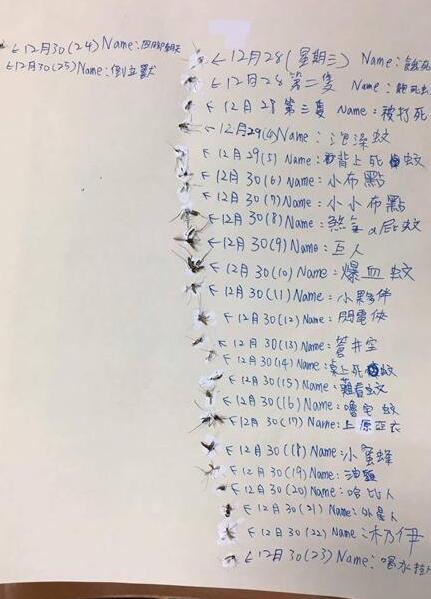 ←12月28(星期三) Name:餓死
←12月28第二隻 Name:飽死
←12月28第三隻 Name:被打死
←12月29(4)Name:泡澡蚊
←12月29(5)Name:背上死蚊
←12月30(6)Name:小布點
←12月30(7)Name:小小布點
←12月30(8)Name:煞氣a屁蚊
←12月30(9)Name:巨人
←12月30(10)Name:爆血蚊
←12月30(11)Name:小夥伴
←12月30(12)Name:閃電俠
←12月30(13)Name:蒼井空
←12月30(14)Name:桌上死蚊
←12月30(15)Name:難看蚊
←12月30(16)Name:嚕宅蚊
←12月30(17)Name:上原亞衣
←12月30(18)Name:小蜜蜂
←12月30(19)Name:油鹽
←12月30(20)Name:哈比人
←12月30(21)Name:外星人
←12月30(22)Name:沐乃伊
←12月30(23)Name:喝水
←12月30(24)Name:四腳朝天
←12月30(25)Name:倒立獸